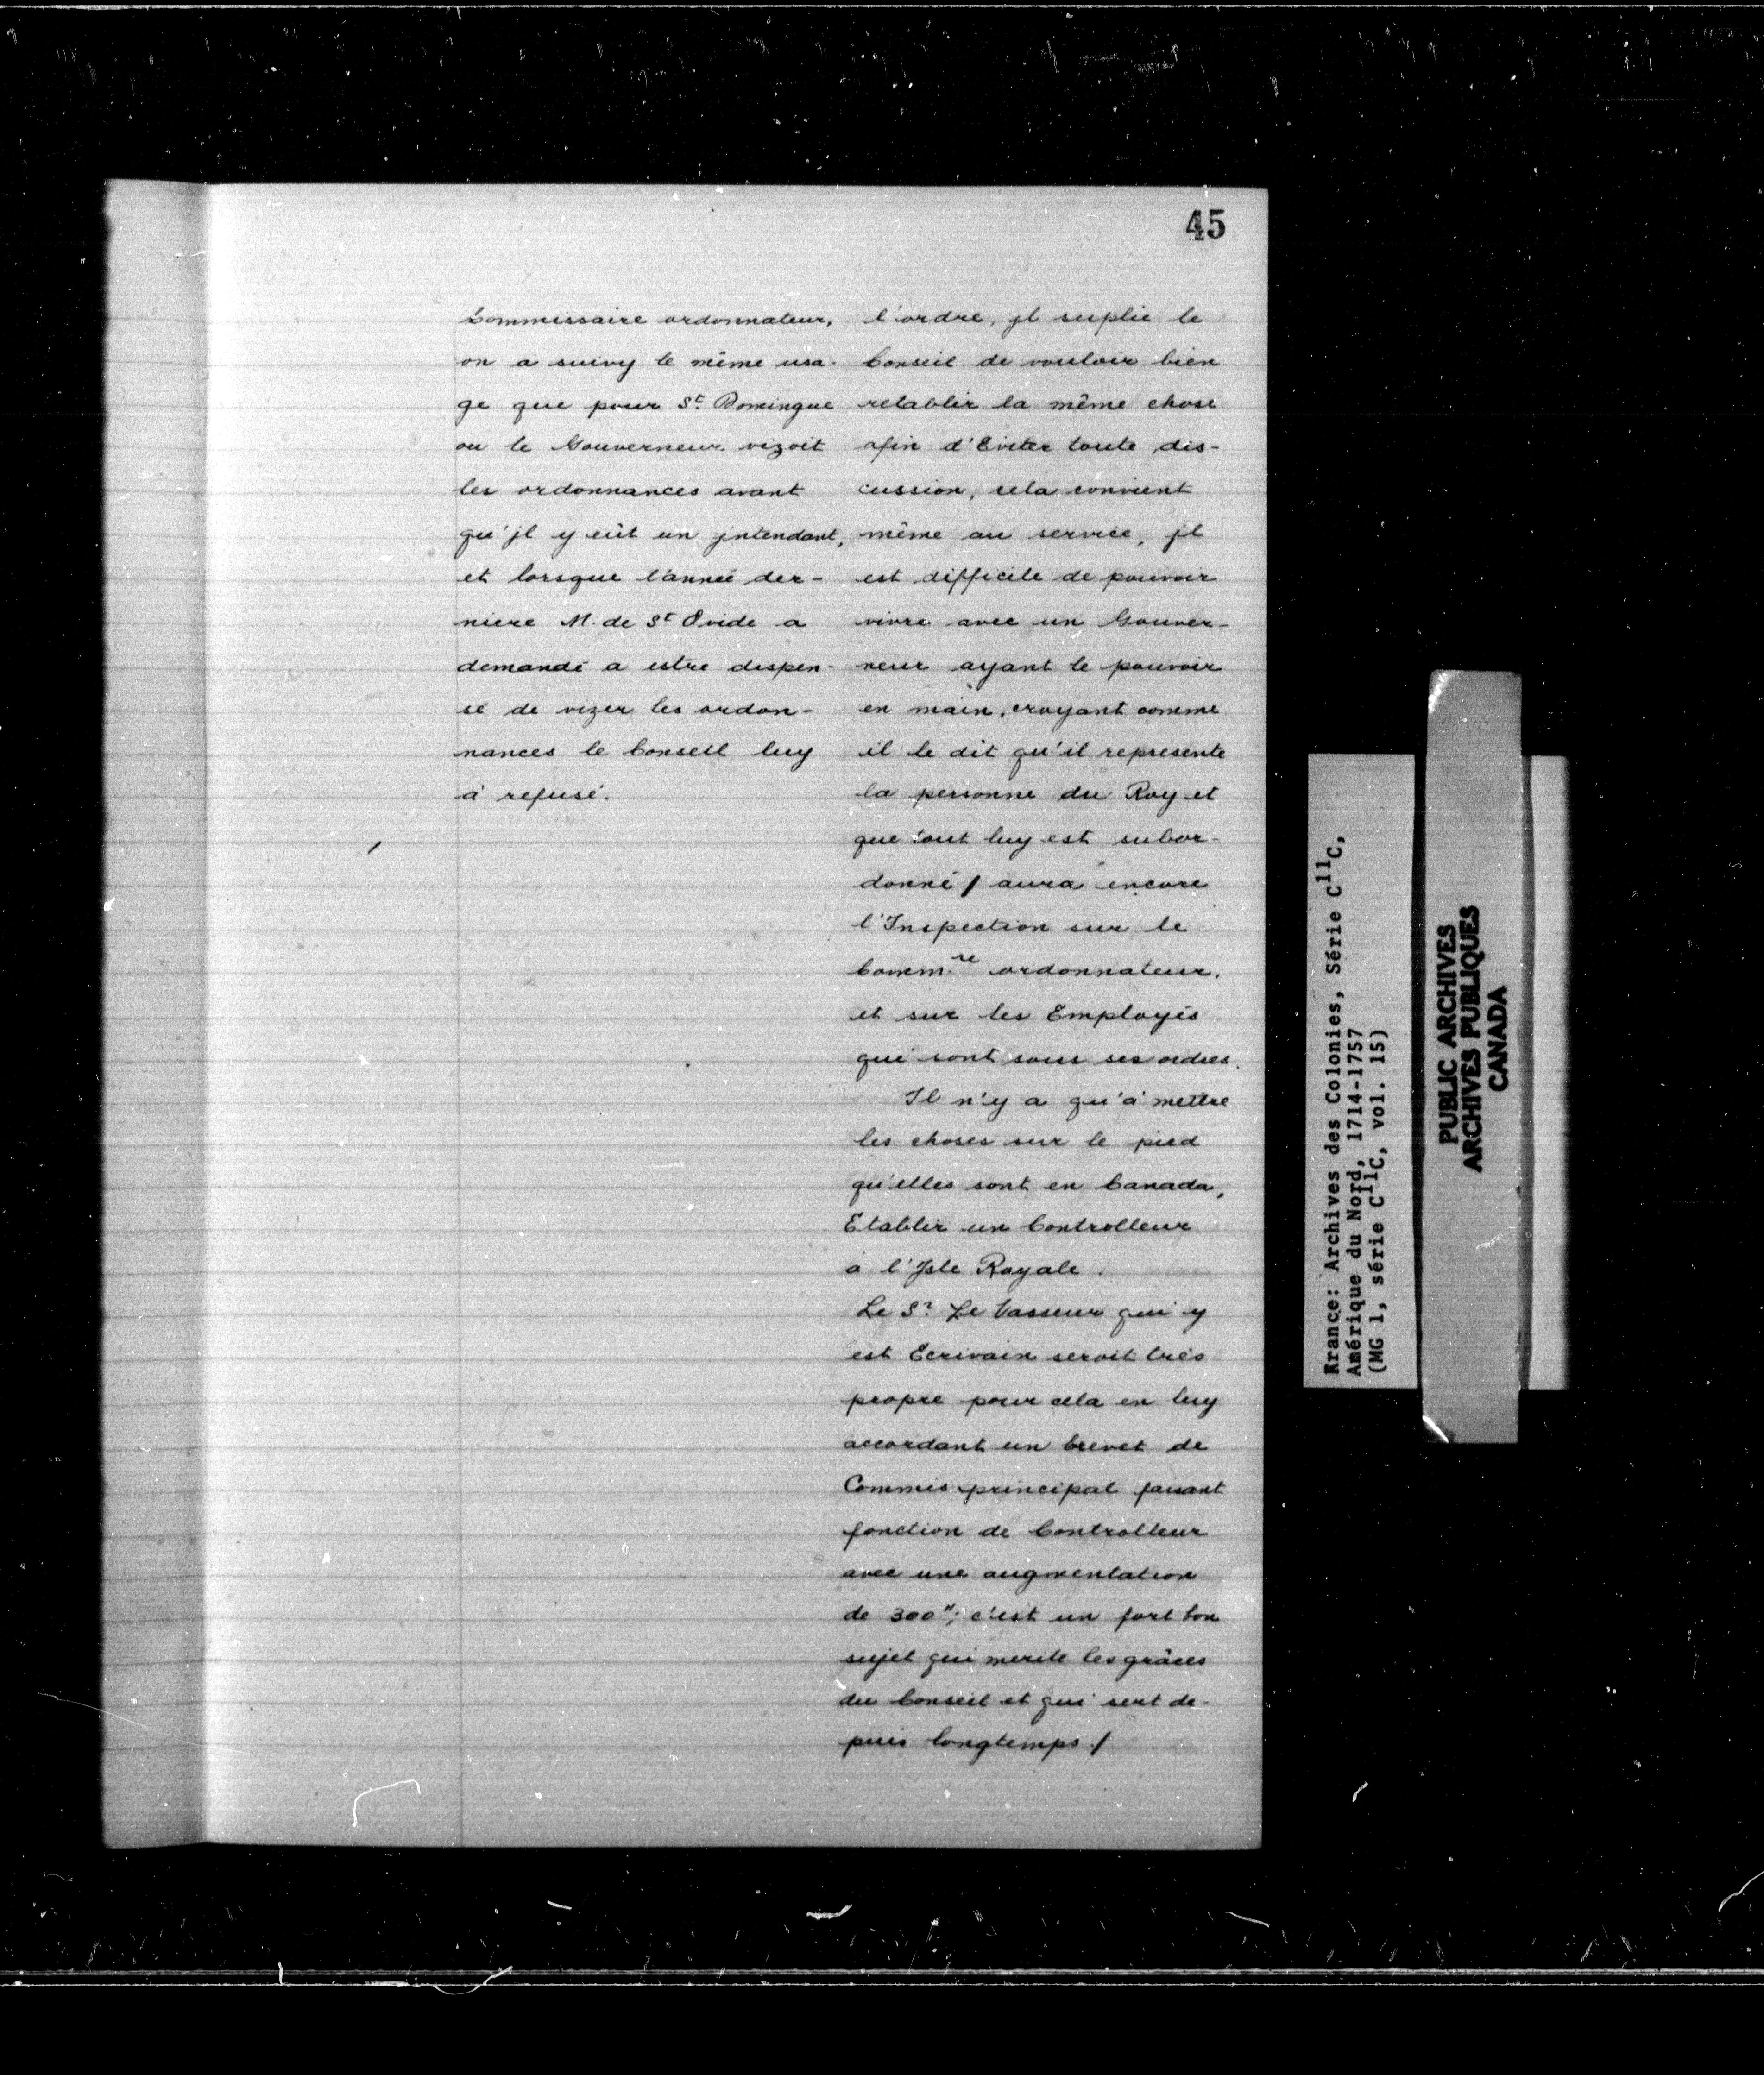 45
Commissaire ordonnateur,
on a suivy le même usa-
ge que pour St. Domingue
ou le Gouverneur vizoit
les ordonnances avant
qu'jl y eût un jntendant,
et lorsque l'année der-
niere M. de St Ovide a
demandé a estre dispen-
sé de vizer les ordon-
nances le Conseil luy
à refusé.
l'ordre, jl suplie le
Conseil de vouloir bien
retablir la même chose
afin d'Eviter toute dis-
cussion, cela convient
même au service, jl
est difficile de pouvoir
vivre avec un Gouver-
neur ayant le pouvoir
en main, croyant comme
il le dit qu'il represente
la personne du Roy et
que tout luy est subor-
donné / aura encore
l'Inspection sur le
Comm.re ordonnateur,
et sur les Employés
qui sont sous ses ordres.
Il n'y a qu'à mettre
les choses sur le pied
qu'elles sont en Canada,
Etablir un Controlleur
a l'Jsle Royale.
Le Sr. Le Vasseur qui y
est Ecrivain seroit très
propre pour cela en luy
accordant un brevet de
Commis principal faisant
fonction de Controlleur
avec une augmentation
de 300"; c'est un fort bon
sujet qui merite les grâces
du Conseil et qui sert de-
puis longtemps /
Krance: Archives des Colonies, Série C11C,
Amérique du Nord, 1714-1757
(MG 1, série C11C, vol. 15)
PUBLIC ARCHIVES
ARCHIVES PUBLIQUES
CANADA